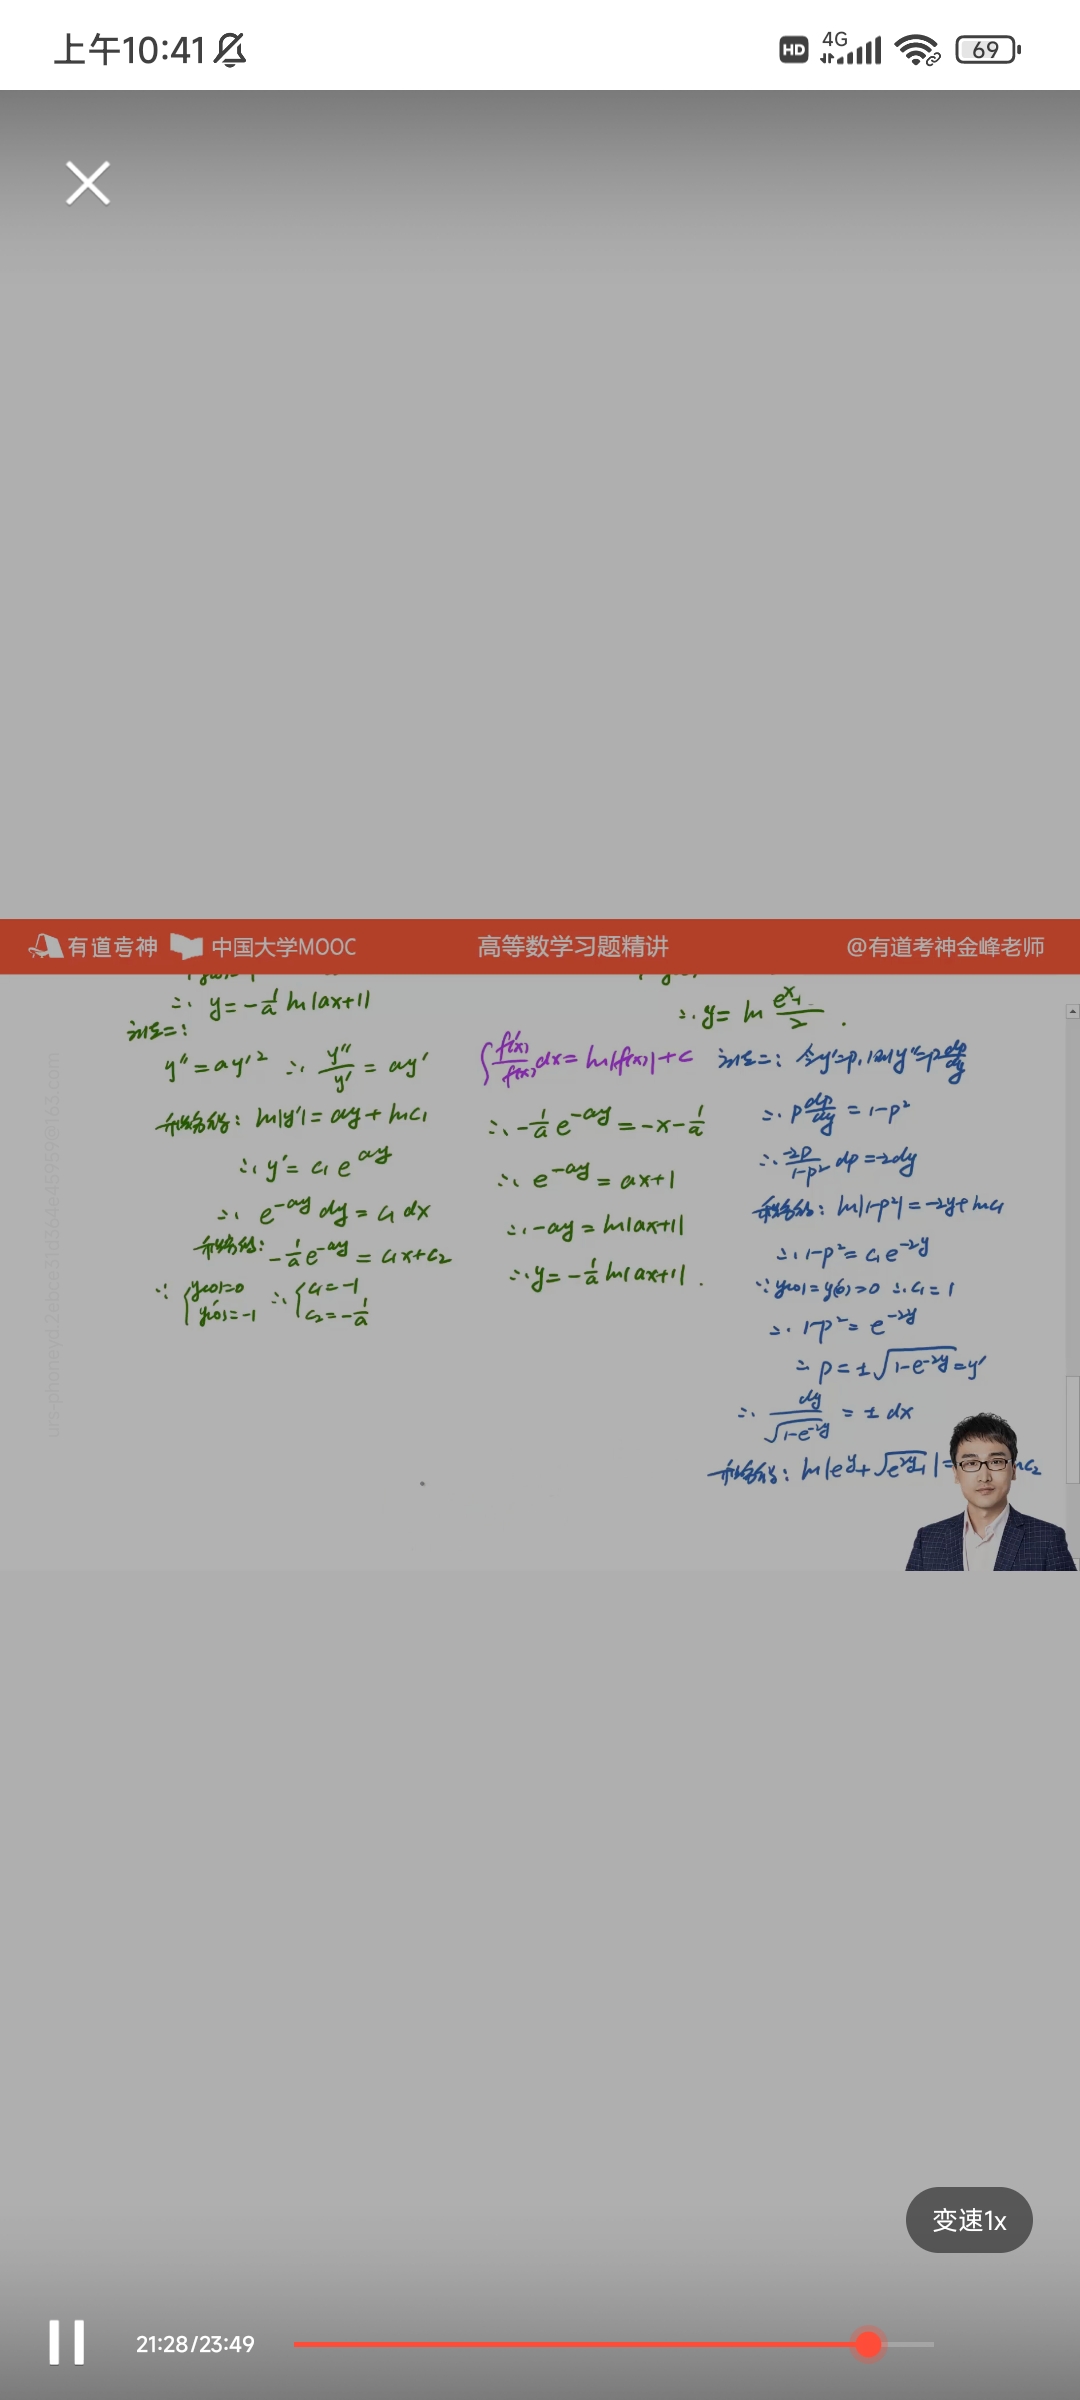 上午10:41
HD 4G 69
有道考神 中国大学MOOC 高等数学习题精讲 @有道考神金峰老师
∴ y = -1/a ln|ax+1|
法二:
y'' = ay'² ∴ y''/y' = ay'
积分得: ln|y'| = ay + lnc₁
∴ y' = c₁e^{ay}
∴ e^{-ay} dy = c₁ dx
积分得: -1/a e^{-ay} = c₁x + c₂
∵ { y(0)=0 y'(0)=-1 ∴ { c₁=-1 c₂=-1/a
∫ f'(x)/f(x) dx = ln|f(x)| + c
∴ -1/a e^{-ay} = -x - 1/a
∴ e^{-ay} = ax+1
∴ -ay = ln|ax+1|
∴ y = -1/a ln|ax+1| .
法二: 令y'=p, 则y''=p dp/dy
∴ p dp/dy = 1-p²
∴ -2p/(1-p²) dp = -2dy
积分得: ln|1-p²| = -2y + lnc₁
∴ 1-p² = c₁e^{-2y}
∵ y(0)=y'(0)=0 ∴ c₁=1
∴ 1-p² = e^{-2y}
∴ p = ±√(1-e^{-2y}) = y'
∴ dy/√(1-e^{-2y}) = ± dx
积分得: ln|e^y + √(e^{2y}-1)| =
变速1x
21:28/23:49